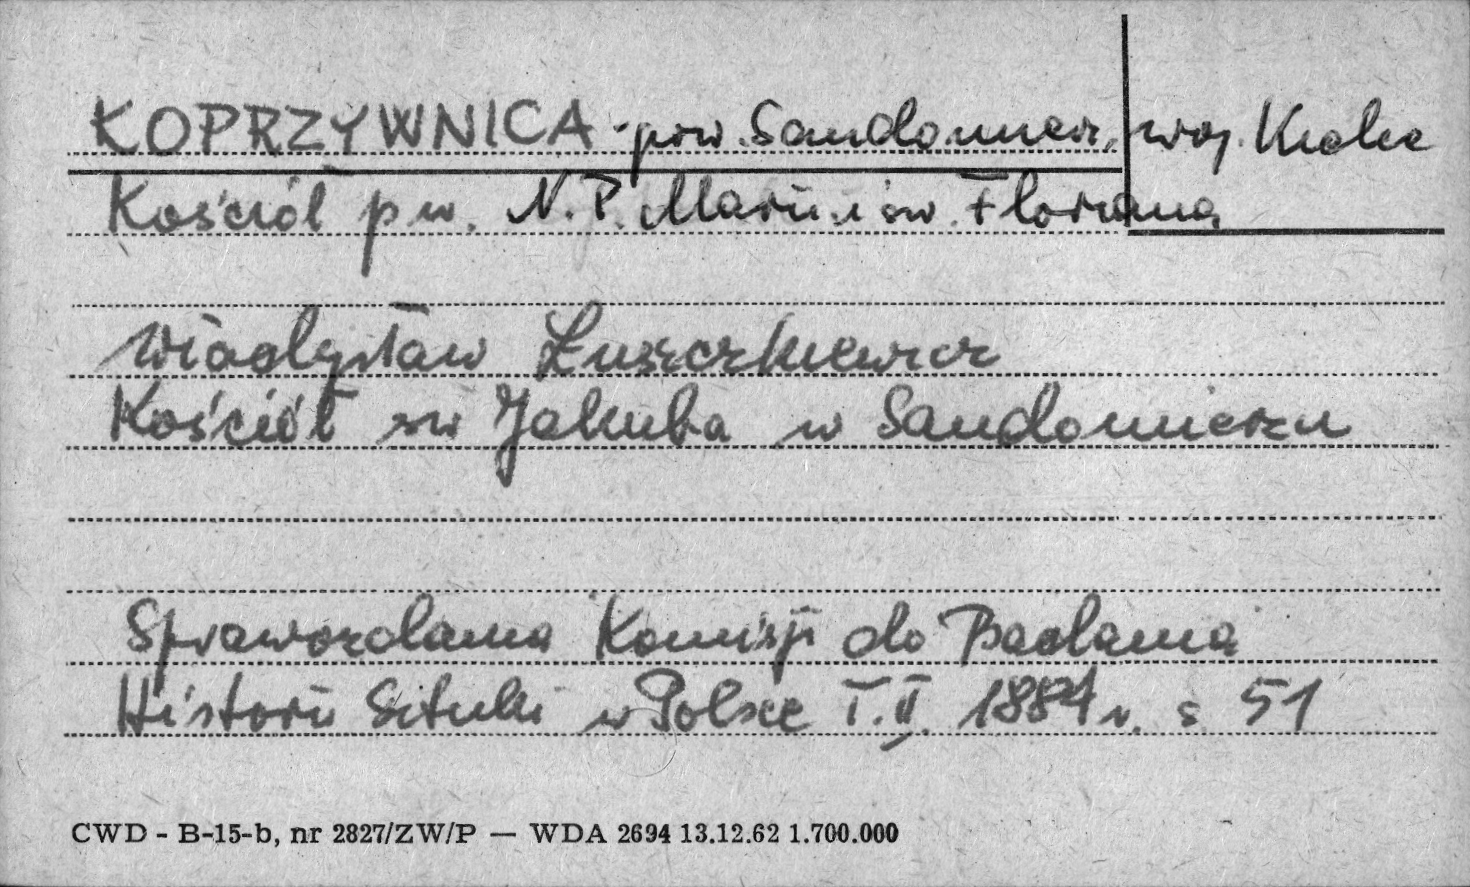 KOPRZYWNICA - pow. Sandomierz, woj. Kielce
Kościół pw. N.P. Marii i św. Floriana
Władysław Łuszczkiewicz
Kościół św Jakuba w Sandomierzu
Sprawozdania Komisji do Badania
Historii Sztuki w Polsce T.II. r. s 51
CWD - B-15-b, nr 2827/ZW/P — WDA 2694 13.12.62 1.700.000